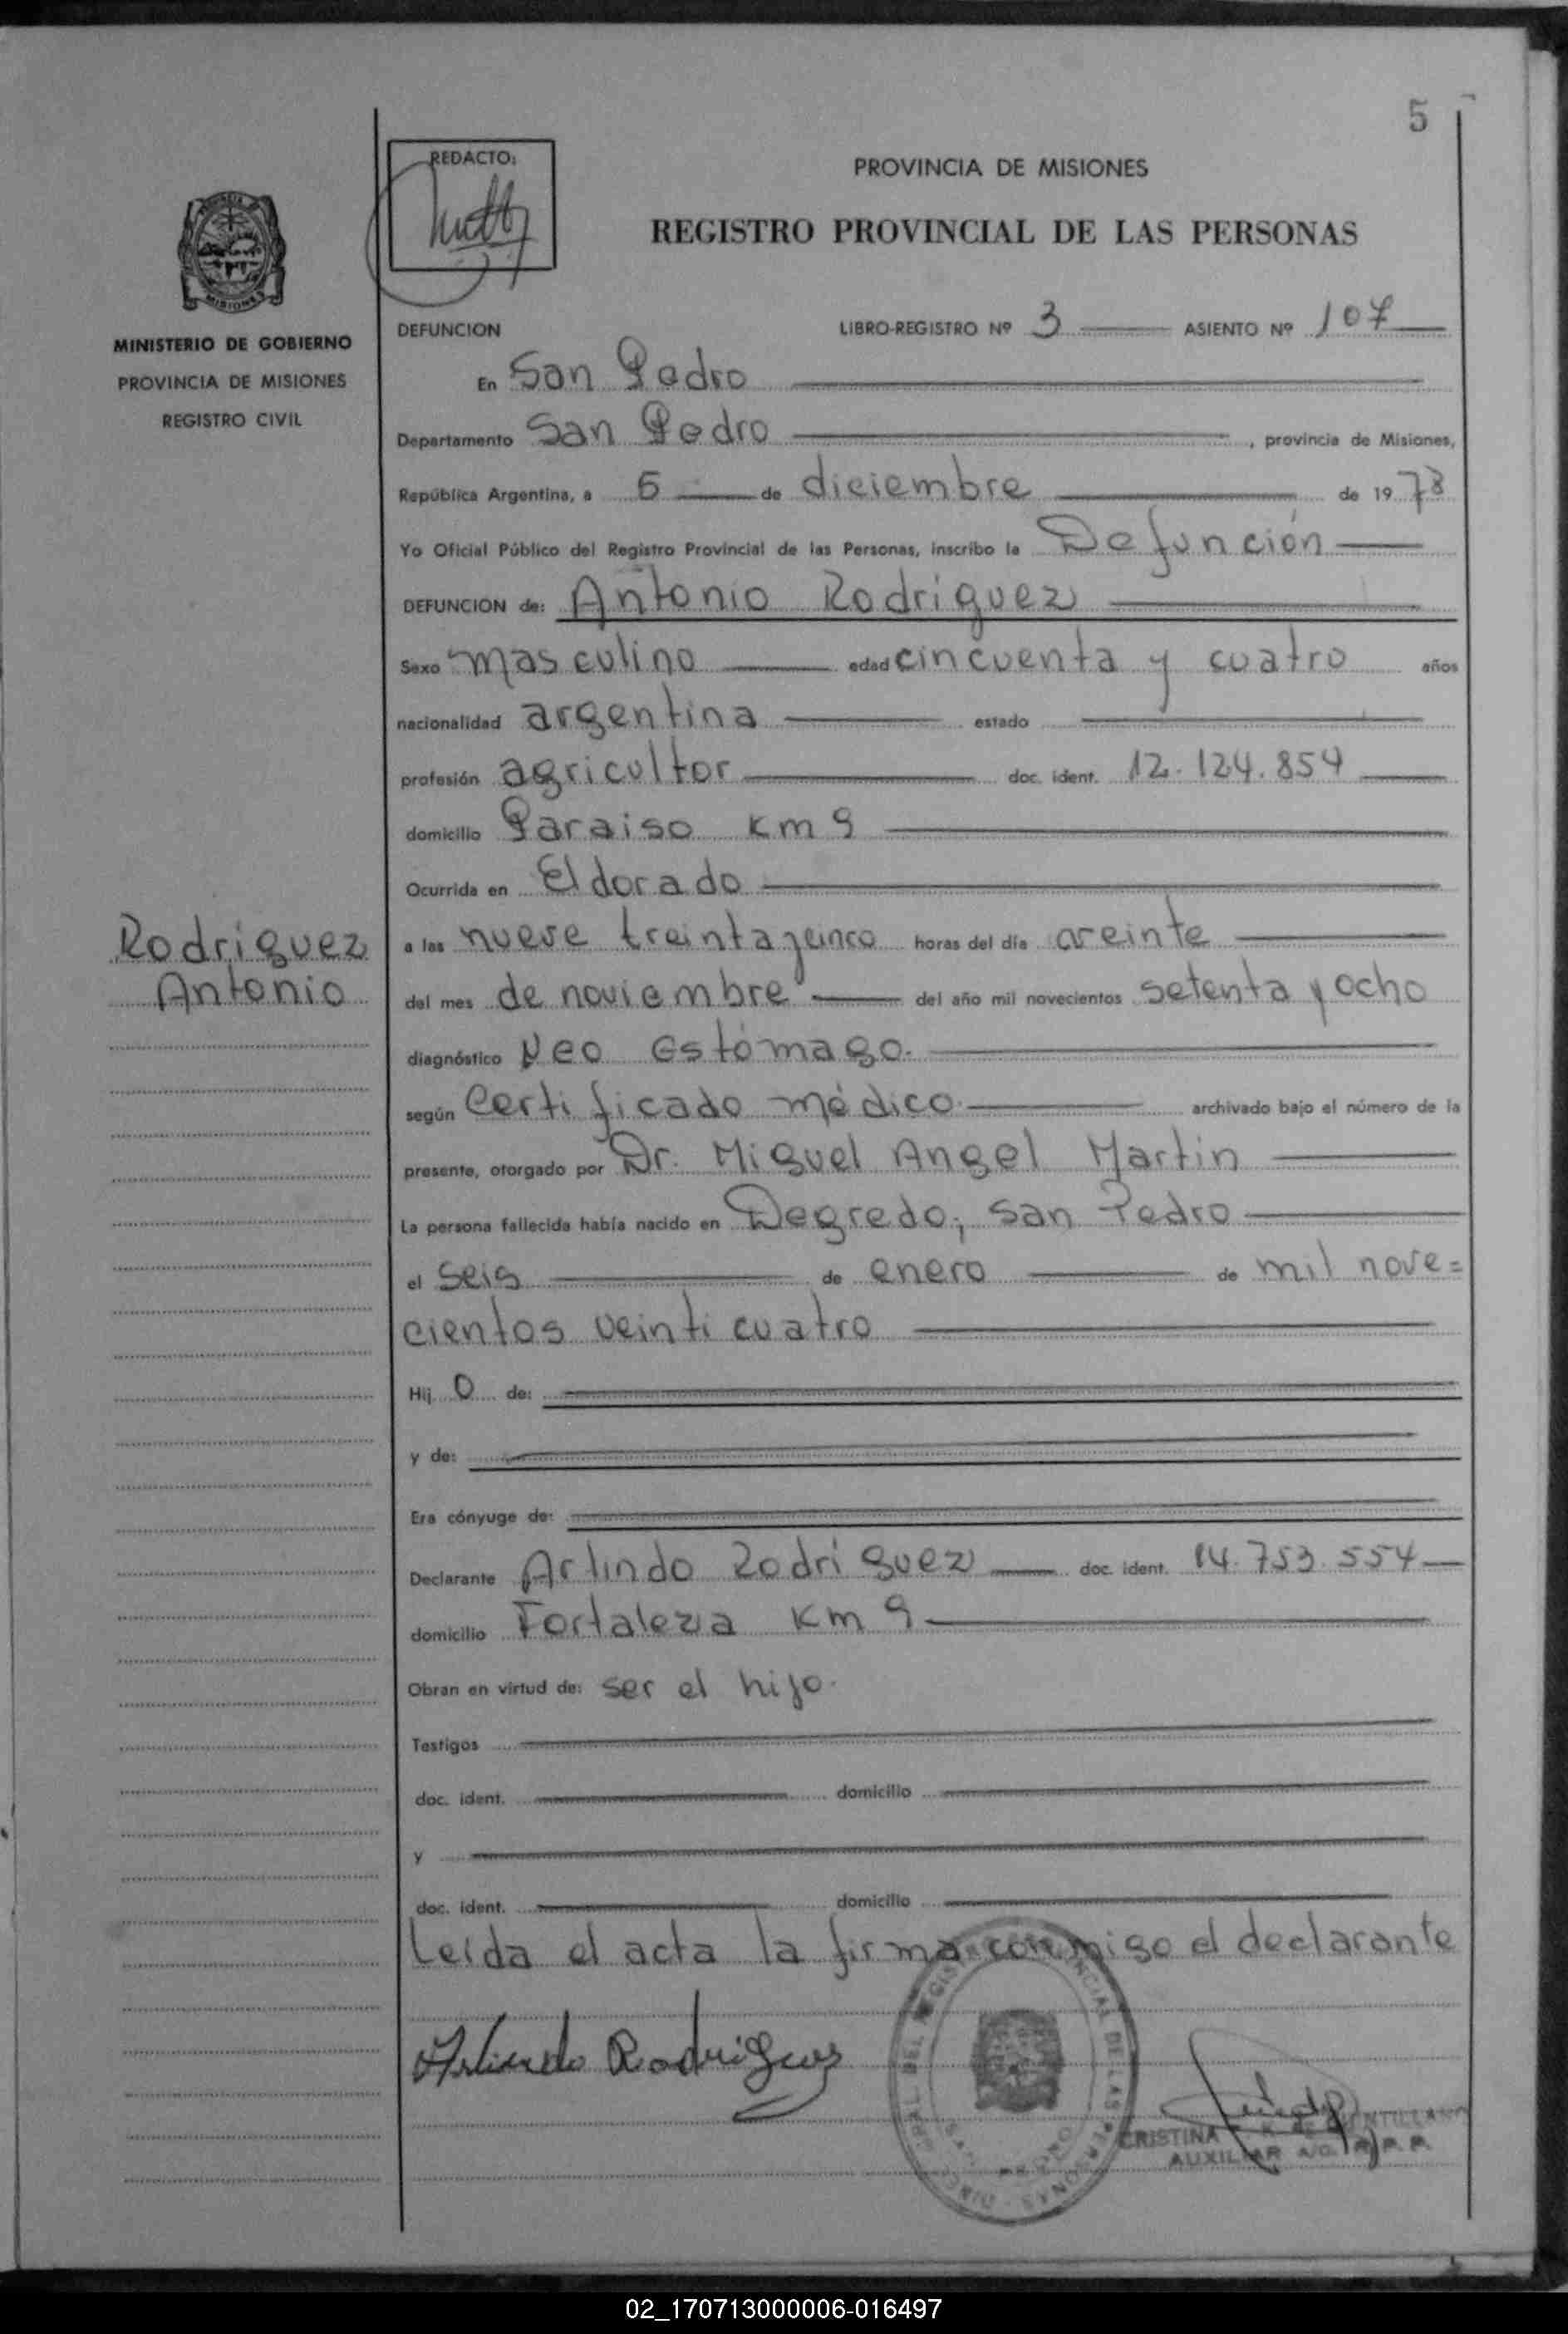 5
REDACTO:
PROVINCIA DE MISIONES
REGISTRO PROVINCIAL DE LAS PERSONAS
MISIONES
MINISTERIO DE GOBIERNO
PROVINCIA DE MISIONES
REGISTRO CIVIL
DEFUNCION LIBRO-REGISTRO Nº 3 ASIENTO Nº 107
En San Pedro
Departamento San Pedro, provincia de Misiones,
República Argentina, a 5 de diciembre de 1978
Yo Oficial Público del Registro Provincial de las Personas, inscribo la Defunción
DEFUNCION de: Antonio Rodriguez
Sexo masculino edad cincuenta y cuatro años
nacionalidad argentina estado
profesión agricultor doc. ident. 12.124.854
domicilio Paraiso Km 9
Ocurrida en Eldorado
Rodriguez
Antonio
a las nueve treintaycinco horas del día treinte
del mes de noviembre del año mil novecientos setenta y ocho
diagnóstico Neo estómago.
según Certificado médico archivado bajo el número de la
presente, otorgado por Dr. Miguel Angel Martin
La persona fallecida había nacido en Degredo, San Pedro
el seis de enero de mil nove=
cientos veinti cuatro
Hij o de:
y de:
Era cónyuge de:
Declarante Arlindo Rodriguez doc. ident. 14.753.554
domicilio Fortaleza Km 9
Obran en virtud de: ser el hijo.
Testigos
doc. ident. domicilio
y
doc. ident. domicilio
Leida el acta la firma conmigo el declarante
Arlindo Rodrigues
CRISTINA
AUXILIAR A/C. R.P.P.
02_170713000006-016497